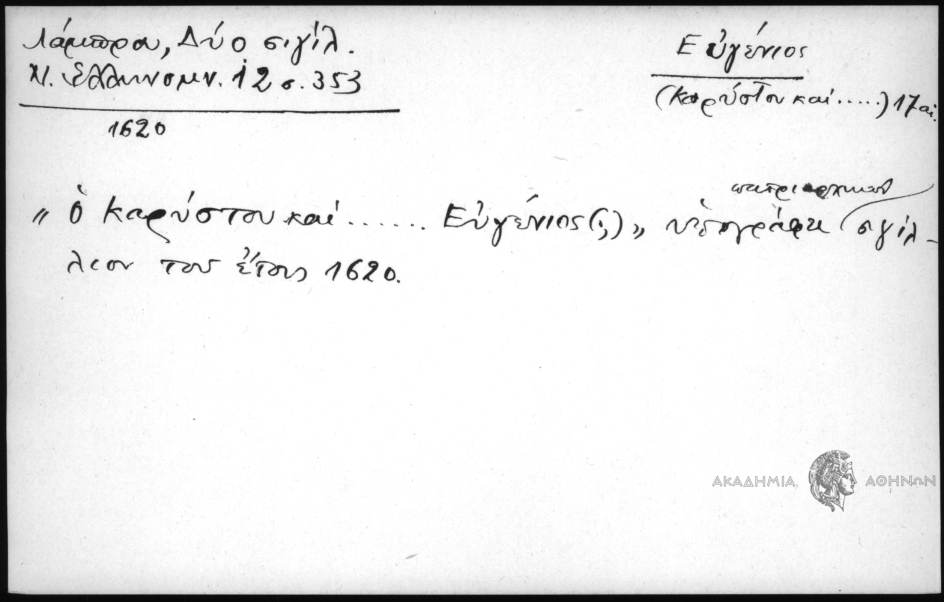 Λάμπρου, Δύο σιγίλ.
Ν. Ἑλληνομν. 12 σ. 353
1620
Εὐγένιος
(Καρύστου καὶ .....) 17 αἰ.
„ ὁ Καρύστου καὶ ...... Εὐγένιος (;) „ ὑπογράφει πατριαρχικὸν σιγίλ-
λιον τοῦ ἔτους 1620.
ΑΚΑΔΗΜΙΑ ΑΘΗΝΩΝ